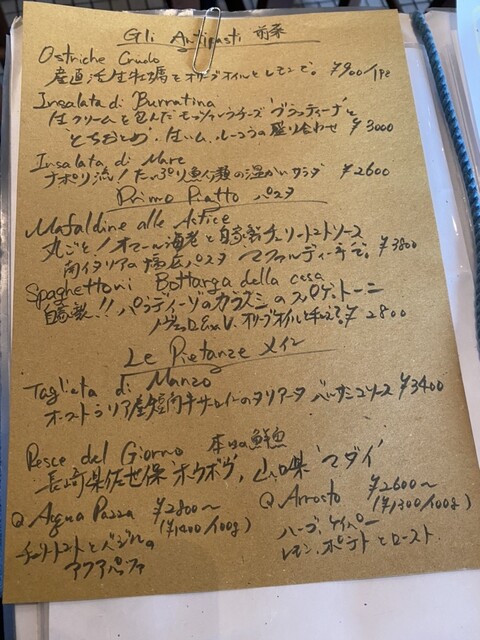 Gli Antipasti 前菜
Ostriche Crudo
産直活生牡蠣をオリーブオイルとレモンで。 ¥900/1pc
Insalata di Burratina
生クリームを包んだモッツァレラチーズ"ブラッティーナ"と
"とちおとめ"、生ハム、ルーコラの盛り合わせ ¥3000
Insalata di Mare
ナポリ流!たっぷり魚介類の温かいサラダ ¥2600
Primo Piatto パスタ
Mafaldine alle Astice
丸ごと!オマール海老と自家製チェリートマトソース
南イタリアの幅広パスタ マファルディーネで。 ¥3800
Spaghettoni Bottarga della casa
自家製!!パラディーゾのカラスミのスパゲットーニ
EX.V.オリーブオイルと ¥2800
Le Pietanze メイン
Tagliata di Manzo
オーストラリア産短角牛サーロインのタリアータ バルサミコソース ¥3400
Pesce del Giorno 本日の鮮魚
長崎県佐世保"ホウボウ"、山口県"マダイ"
@ Acqua Pazza ¥2800〜
(¥1400/100g)
チェリートマトとバジルの
アクアパッツァ
@ Arrosto ¥2600〜
(¥1300/100g)
ハーブ、ケイパー
レモン、ポテトとロースト